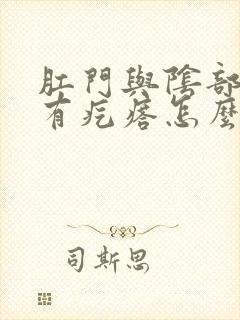 肛門與陰部
有疙瘩怎麼
司斯思